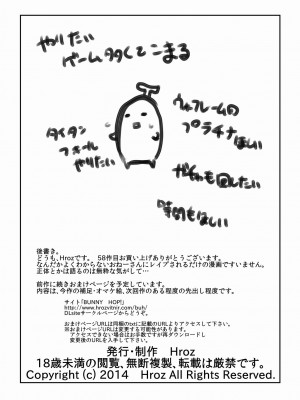 やりたい
ゲーム多くてこまる
ウォーフレームの
プラチナ
ほしい
タイタン
フォール
やりたい
ガチャも回したい
時間もほしい
後書き。
どうも、Hrozです。　58作目お買い上げありがとうございます。
なんだかよくわからないおねーさんにレイプされるだけの漫画ですいません。
正体とかは語るのは無粋な気がして…
前作に続きおまけページを予定しています。
内容は、今作の補足・オマケ絵、次回作のある程度の先出し程度です。
サイト「BUNNY　HOP」
DLsiteサークルページからどうぞ。
おまけページURLは同梱のtxtに記載のURLよりアクセスして下さい。
※おまけページURLは変更する可能性があります。
アクセスできない場合はお手数ですが再ダウンロードし
変更後のURLを入手して下さい。
発行・制作　Hroz
18歳未満の閲覧、無断複製、転載は厳禁です。
Copyright (c) 2014　Hroz All Rights Reserved.